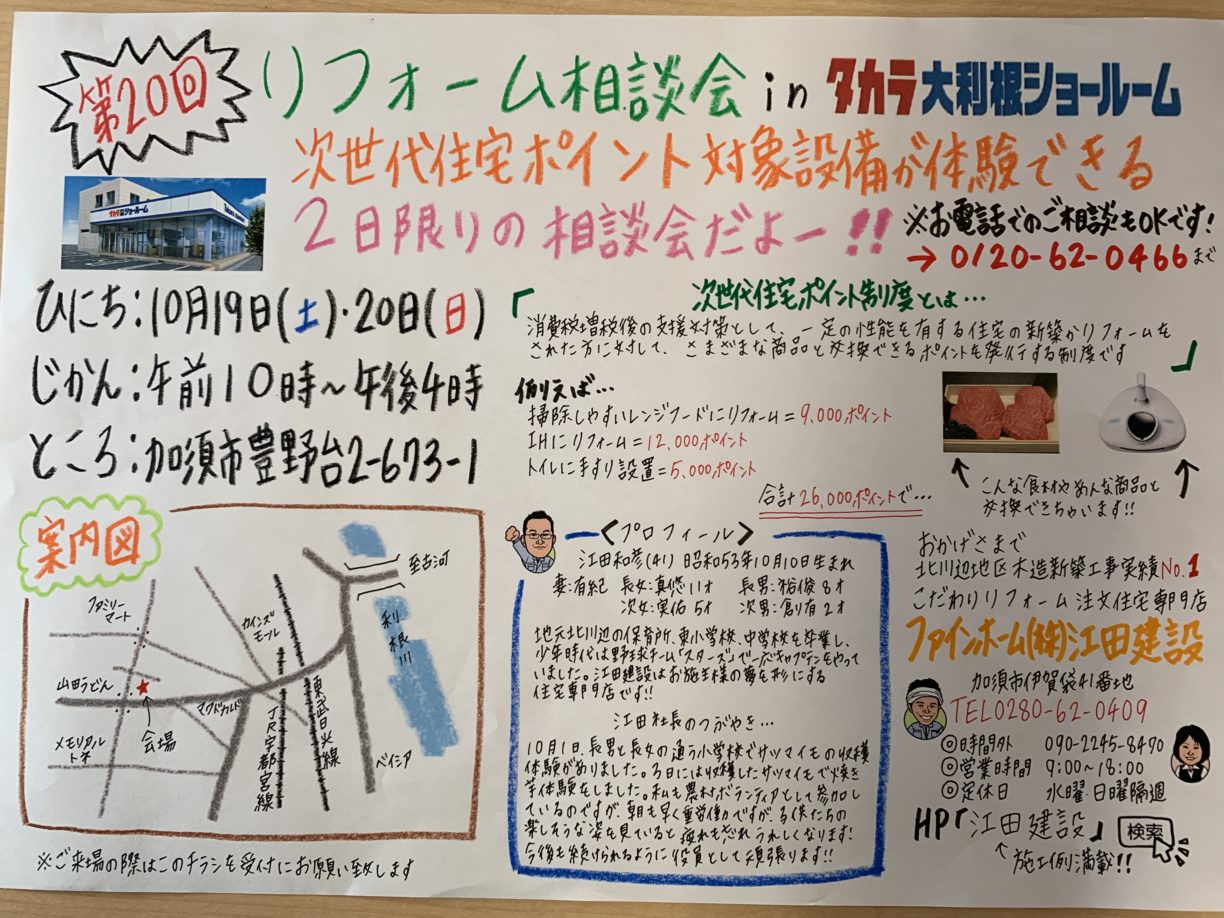 第20回
リフォーム相談会 in タカラ大利根ショールーム
次世代住宅ポイント対象設備が体験できる
2日限りの相談会だよー!!
※お電話でのご相談もOKです!
→ 0120-62-0466まで
タカラショールーム
ひにち:10月19日(土)・20日(日)
じかん:午前10時〜午後4時
ところ:加須市豊野台2-673-1
「次世代住宅ポイント制度とは…
消費税増税後の支援対策として、一定の性能を有する住宅の新築かリフォームを
された方に対して、さまざまな商品と交換できるポイントを発行する制度です」
例えば…
掃除しやすいレンジフードにリフォーム=9,000ポイント
IHにリフォーム=12,000ポイント
トイレに手すり設置=5,000ポイント
合計26,000ポイントで…
こんな食材やあんな商品と
交換できちゃいます!!
案内図
至古河
利根川
ファミリーマート
カインズモール
山田うどん
マクドナルド
会場
メモリアルトネ
JR宇都宮線
東武日光線
ベイシア
※ご来場の際はこのチラシを受付にお願い致します
<プロフィール>
江田和彦(41) 昭和53年10月10日生まれ
妻:有紀 長女:真悠11才 長男:裕俊8才
次女:実佑5才 次男:創有2才
地元北川辺の保育所、東小学校、中学校を卒業し、
少年時代は野球チーム「スターズ」で一応キャプテンをやって
いました。江田建設はお施主様の夢を形にする
住宅専門店です!!
江田社長のつぶやき…
10月1日、長男と長女の通う小学校でサツマイモの収穫
体験がありました。3日には収穫したサツマイモで焼き
芋体験をしました。私も農村ボランティアとして参加し
ているのですが、朝も早く重労働ですが、子供たちの
楽しそうな姿を見ていると疲れも忘れうれしくなります!
今後も続けられるように役員として頑張ります!!
おかげさまで
北川辺地区木造新築工事実績No.1
こだわりリフォーム 注文住宅専門店
ファインホーム(株)江田建設
加須市伊賀袋41番地
TEL0280-62-0409
◎時間外 090-2245-8490
◎営業時間 9:00~18:00
◎定休日 水曜・日曜隔週
HP「江田建設」 検索
施工例満載!!